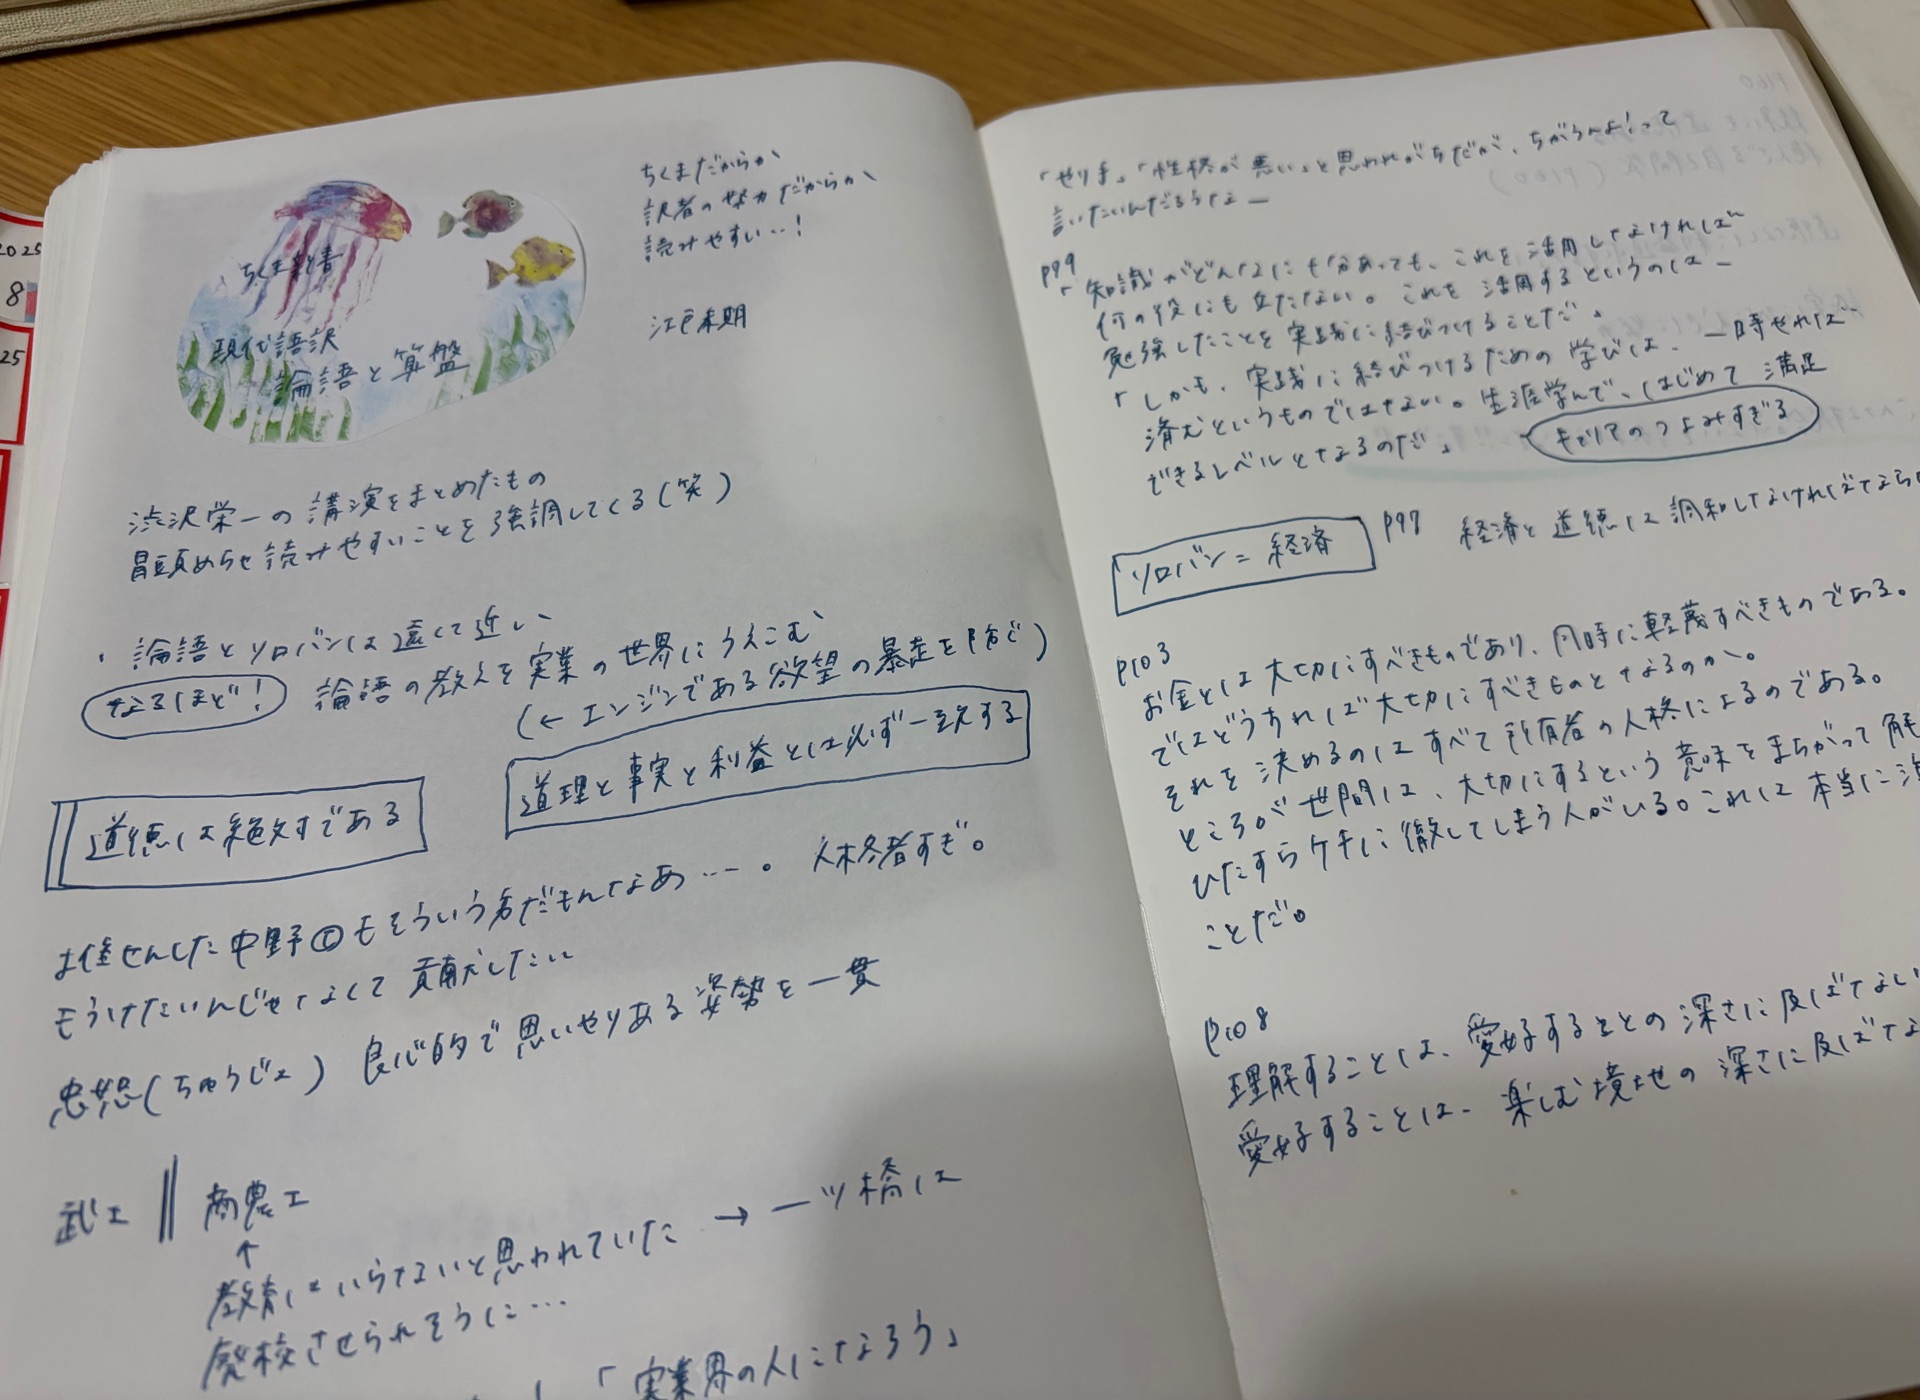 2025
8
25
ちくま新書
現代語訳
論語と算盤
ちくまだからか
訳者の努力だからか
読みやすい…!
江戸末期
渋沢栄一の講演をまとめたもの
冒頭から読みやすいことを強調してくる(笑)
・論語とソロバンは遠くて近い
なるほど! 論語の教えを実業の世界にうえこむ
(← エンジンである欲望の暴走を防ぐ)
道理と事実と利益とは必ず一致する
道徳は絶対である
推せんした中野©もそういう方だもんなあ…。人格者すぎ。
もうけたいんじゃなくて貢献したい
忠恕(ちゅうじょ) 良心的で思いやりある姿勢を一貫
武士 || 商農工
↑
教育はいらないと思われていた → 一ツ橋は
廃校させられそうに…
「実業界の人になろう」
「やり手」「性格が悪い」と思われがちだが、ちがうんよ!って
言いたいんだろうなー
P99
「知識がどんなに十分あっても、これを活用しなければ
何の役にも立たない。これを活用するというのは、
勉強したことを実践に結びつけることだ。
「しかも、実践に結びつけるための学びは、一時やれば
済むというものではない。生涯学んで、はじめて満足
できるレベルとなるのだ」 キャリアのつよみすぎる
ソロバン=経済 P97 経済と道徳は調和しなければならな
P103
お金とは大切にすべきものであり、同時に軽蔑すべきものである。
ではどうすれば大切にすべきものとなるのか。
それを決めるのはすべて所有者の人格によるのである。
ところが世間は、大切にするという意味をまちがって解
ひたすらケチに徹してしまう人がいる。これは本当に注
ことだ。
P108
理解することは、愛好することの深さに及ばない
愛好することは、楽しむ境地の深さに及ばな